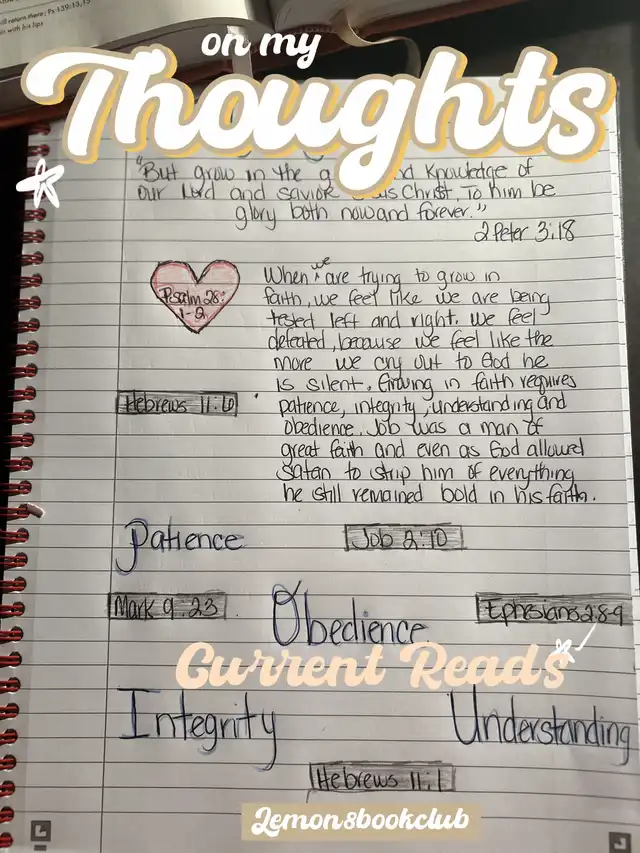 will return there; Ps 139:13,15
with his lips
on my
Thoughts
"But grow in the g nd knowledge of
our Lord and savior us Christ. To him be
glory both now and forever."
2 Peter 3:18
Psalm 28:
1-2
When we are trying to grow in
faith, we feel like we are being
tested left and right. We feel
defeated, because we feel like the
more we cry out to God he
is silent. Growing in faith requires
Hebrews 11:6
patience, integrity, understanding and
obedience. Job was a man of
great faith and even as God allowed
Satan to strip him of everything
he still remained bold in his faith.
Patience
Job 2:10
Mark 9:23
Obedience
Ephesians 2:8-9
Current Reads
Integrity
Understanding
Hebrews 11:1
Lemon8bookclub